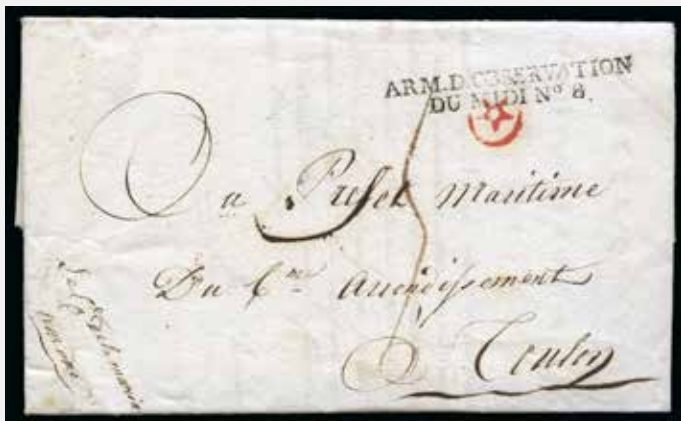 ARM. D'OBSERVATION
DU MIDI Nº 8.
Au Prefet Maritime
Du 6me Arrondissement
Toulon